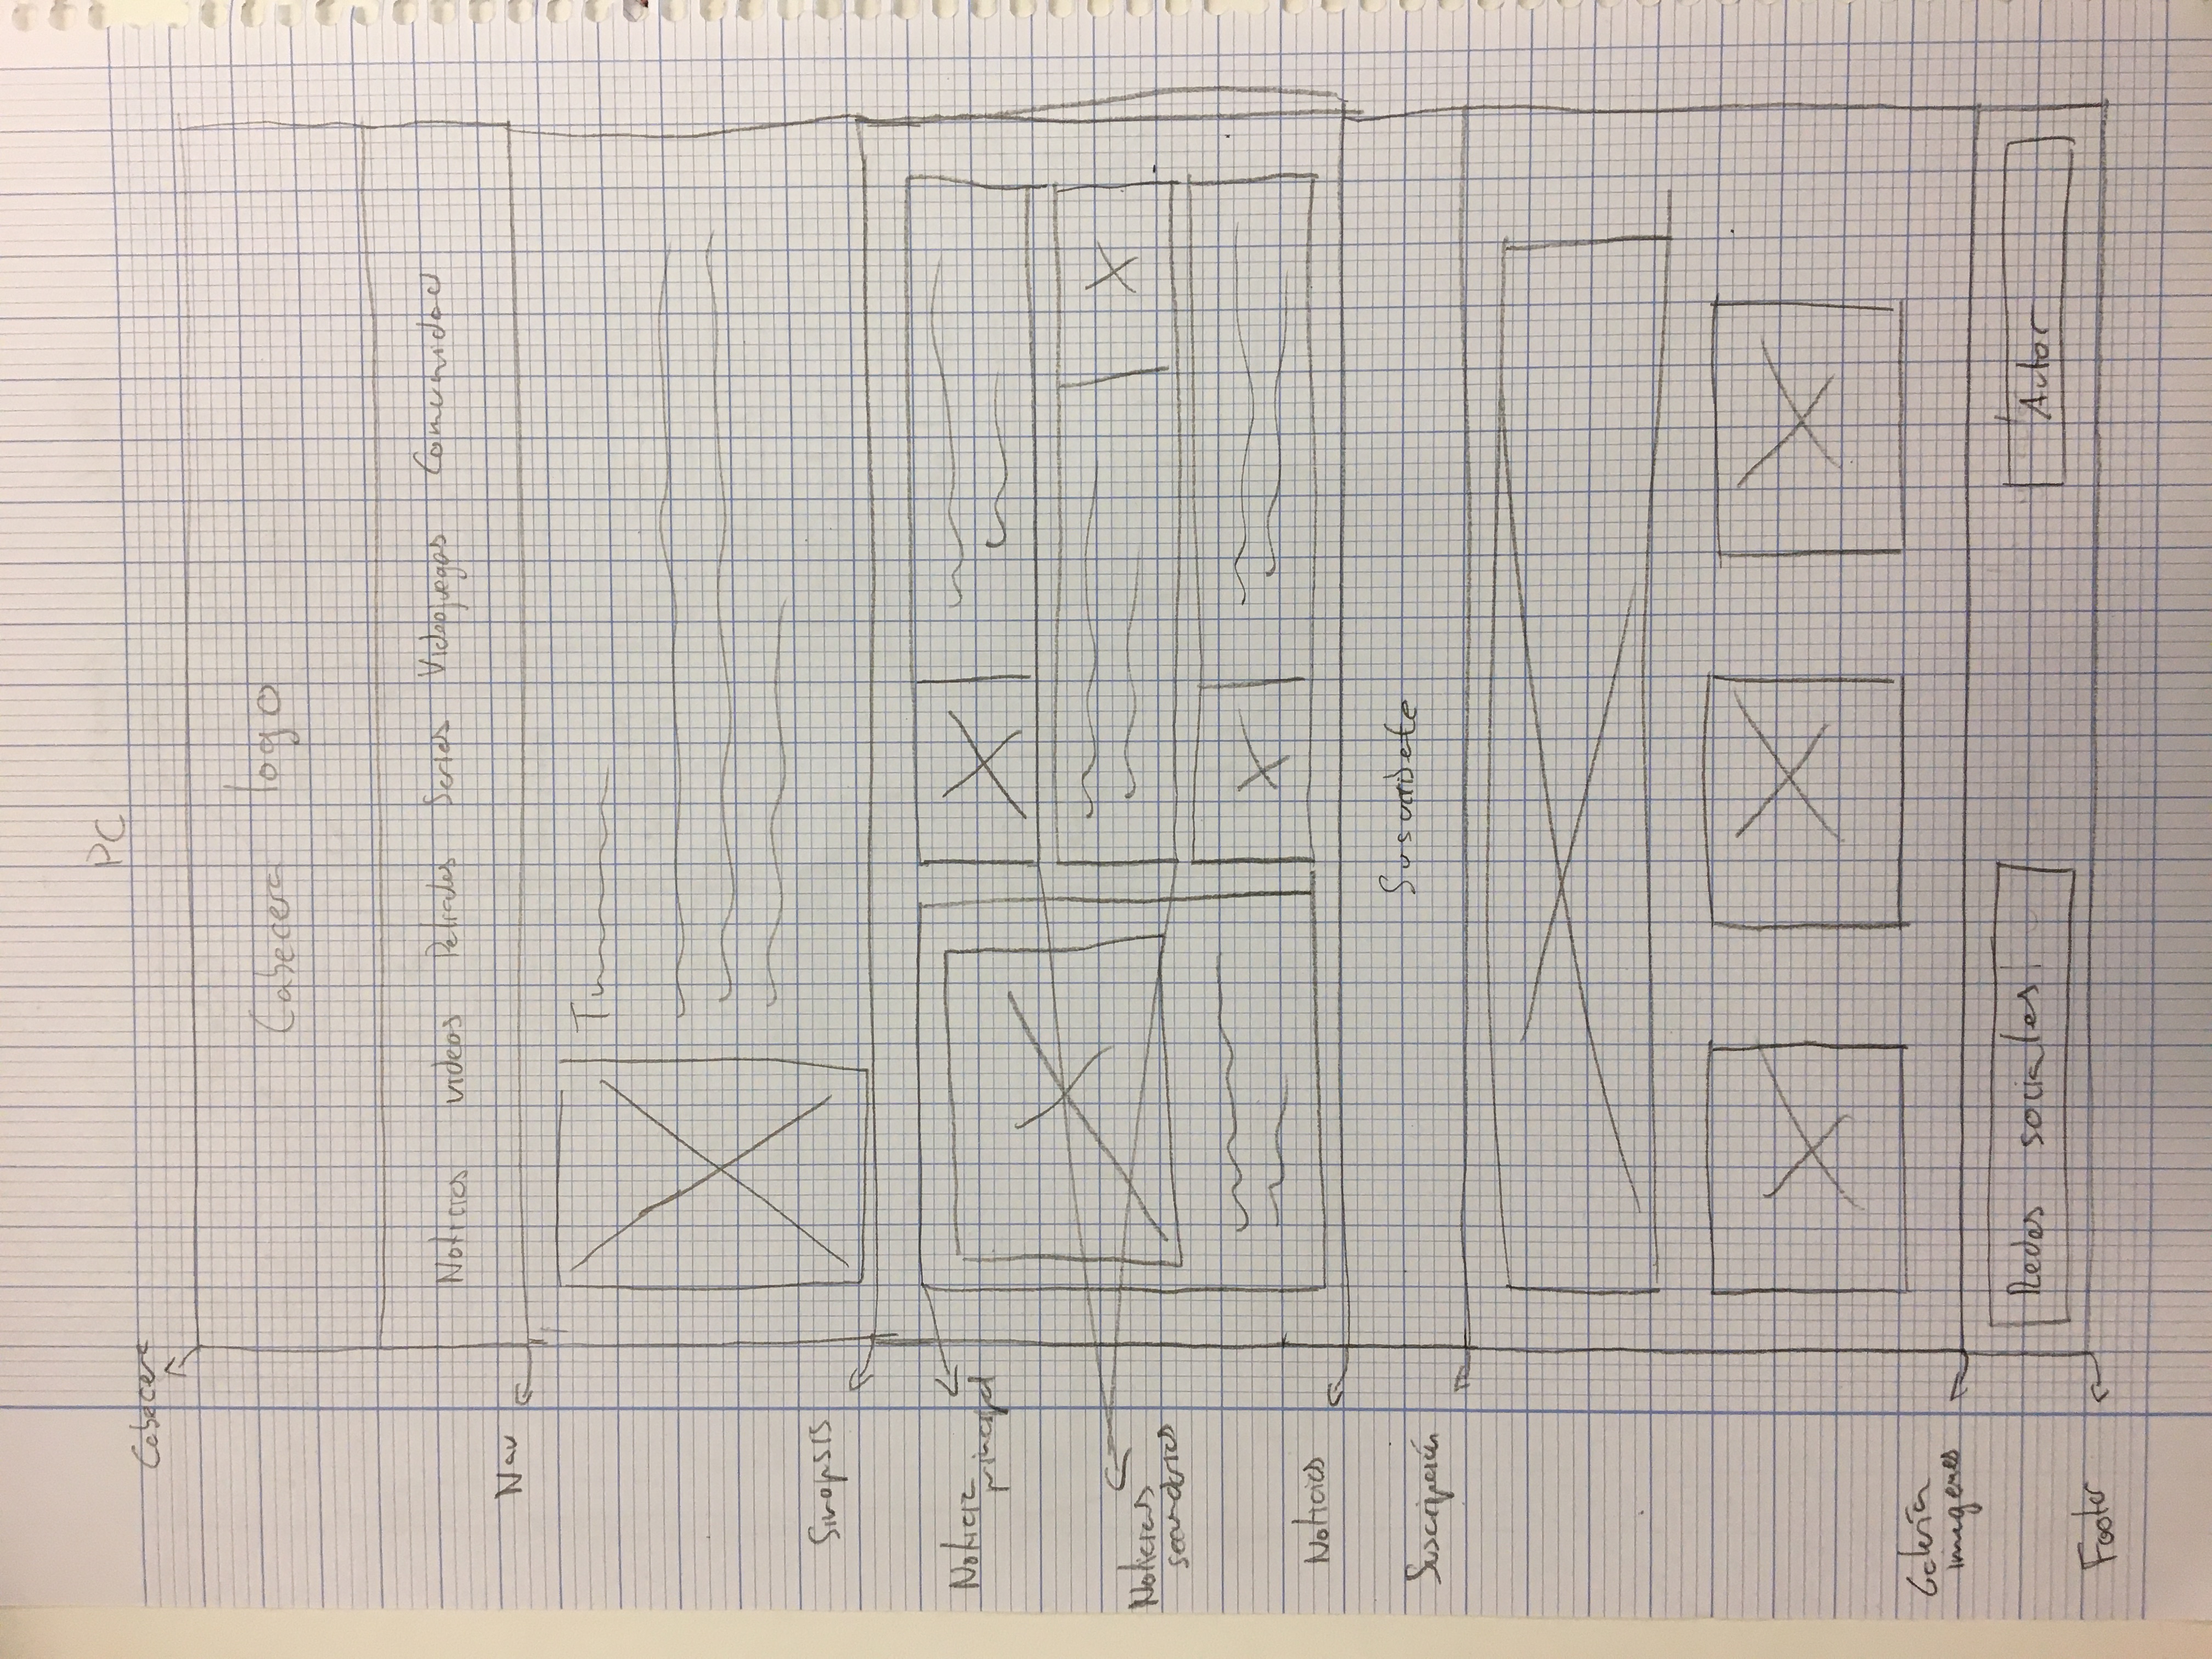 PC
Cabecera
Cabecera logo
Noticias videos Peliculas Series Videojuegos Comunidad
Nav
Sinopsis
Noticia
principal
Noticias
secundarias
Noticias
Suscribete
Suscripción
Galería
imagenes
Redes sociales
Autor
Footer